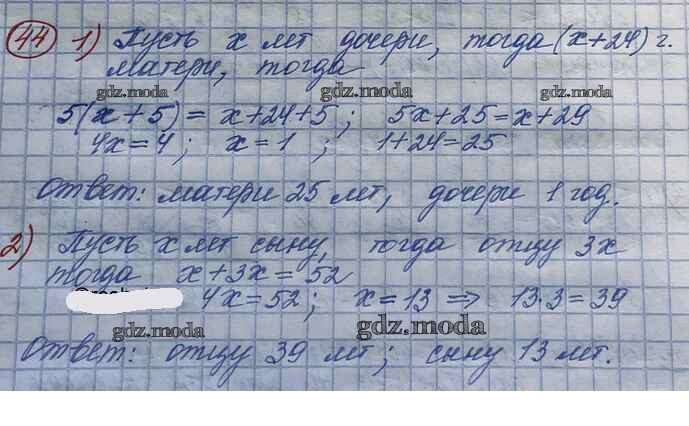 44 1) Пусть x лет дочери, тогда (x+24) г.
матери, тогда
gdz.moda gdz.moda gdz.moda
5(x+5) = x+24+5; 5x+25=x+29
4x=4; x=1; 1+24=25
Ответ: матери 25 лет, дочери 1 год.
2) Пусть x лет сыну, тогда отцу 3x
тогда x+3x=52
4x=52; x=13 => 13·3=39
gdz.moda gdz.moda
Ответ: отцу 39 лет; сыну 13 лет.